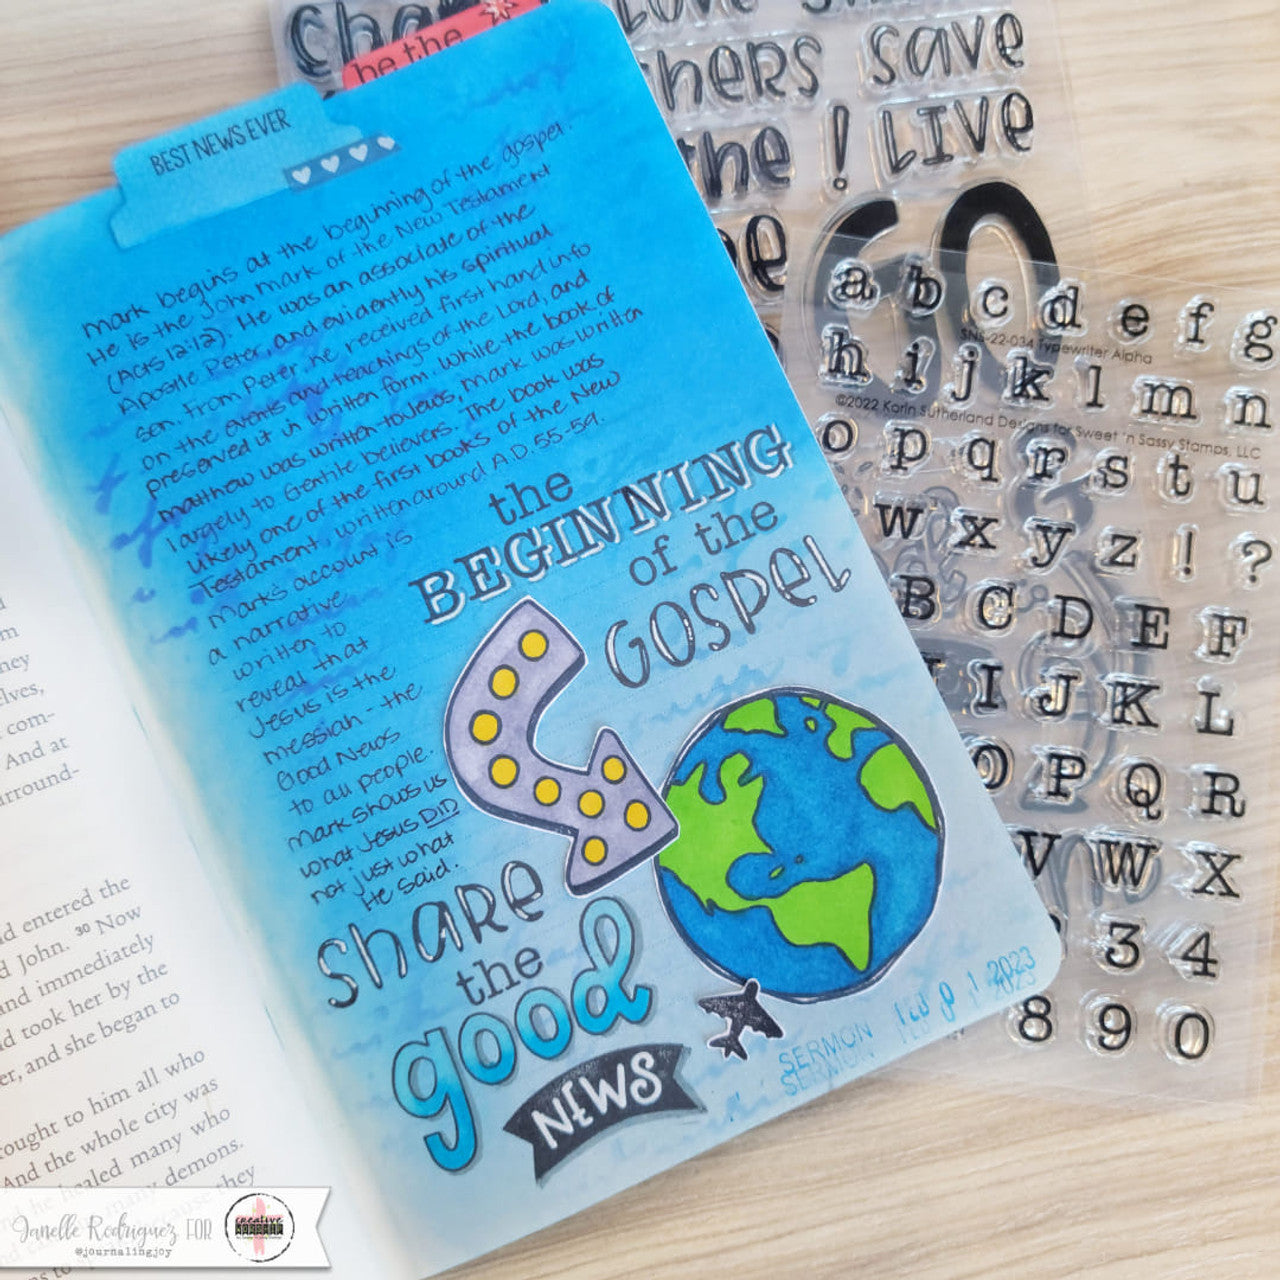 be the
BEST NEWS EVER
Mark begins at the beginning of the gospel.
He is the John Mark of the New Testament
(Acts 12:12). He was an associate of the
Apostle Peter, and evidently his spiritual
son. From Peter, he received first hand info
on the events and teachings of the Lord, and
preserved it in written form. While the book of
Matthew was written to Jews, Mark was written
largely to Gentile believers. The book was
likely one of the first books of the New
Testament, written around A.D. 55-59.
Mark's account is
a narrative
written to
reveal that
Jesus is the
messiah - the
Good News
to all people.
Mark shows us
what Jesus DID
not just what
He said.
the
BEGINNING
of the
GOSPEL
share
the
good
NEWS
SERMON FEB 01 2023
SERMON 2023
love
save
the ! LIVE
GO
a b c d e f g
SNS-22-034 Typewriter Alpha
h i j k l m n
©2022 Korin Sutherland Designs for Sweet 'n Sassy Stamps, LLC
o p q r s t u
w x y z ! ?
&
B C D E F
I J K L
O P Q R
V W X
3 4
8 9 0
elves,
com-
And at
entered the
John. 30 Now
and immediately
took her by the
and she began to
to him all who
And the whole city was
he healed many who
demons.
they
Janelle Rodriguez FOR
@journalingjoy
creative